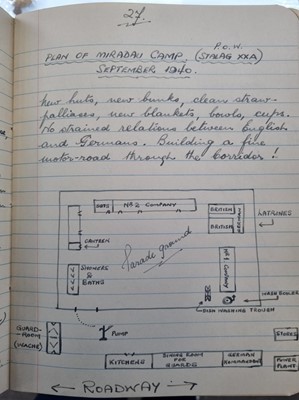 27.
P.O.W.
PLAN OF MIRADAU CAMP. (STALAG XXA)
SEPTEMBER 1940.
New huts, new bunks, clean straw-
palliases, new blankets, bowls, cups.
No strained relations between English
and Germans. Building a fine
motor-road through the corridor!
Nº 2 COMPANY
BRITISH
LATRINES
BRITISH
CANTEEN
Parade ground
Nº 1 Company
SHOWERS
&
BATHS
WASH BOILER
DISH WASHING TROUGH
GUARD-
ROOM
(WACHE)
PUMP
STORES
KITCHENS
DINING ROOM
FOR
GUARDS
GERMAN
KOMMANDEUR
POWER
PLANT
← ROADWAY →